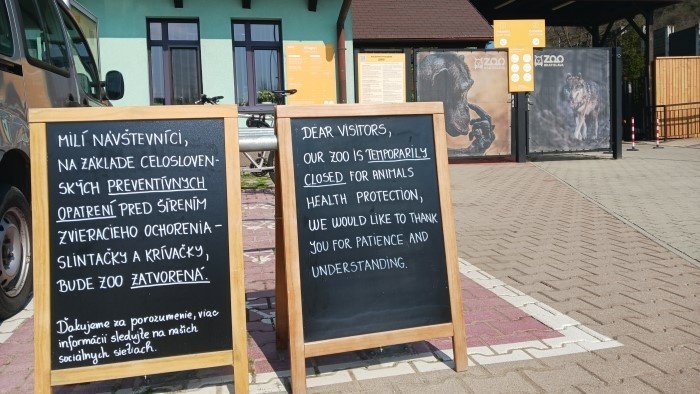 MILÍ NÁVŠTEVNÍCI,
NA ZÁKLADE CELOSLOVEN-
SKÝCH PREVENTÍVNYCH
OPATRENÍ PRED ŠÍRENÍM
ZVIERACIEHO OCHORENIA -
SLINTAČKY A KRÍVAČKY,
BUDE ZOO ZATVORENÁ.
Ďakujeme za porozumenie, viac
informácií sledujte na našich
sociálnych sieťach.
DEAR VISITORS,
OUR ZOO IS TEMPORARILY
CLOSED FOR ANIMALS
HEALTH PROTECTION,
WE WOULD LIKE TO THANK
YOU FOR PATIENCE AND
UNDERSTANDING.
ZOO
ZOO
BRATISLAVA